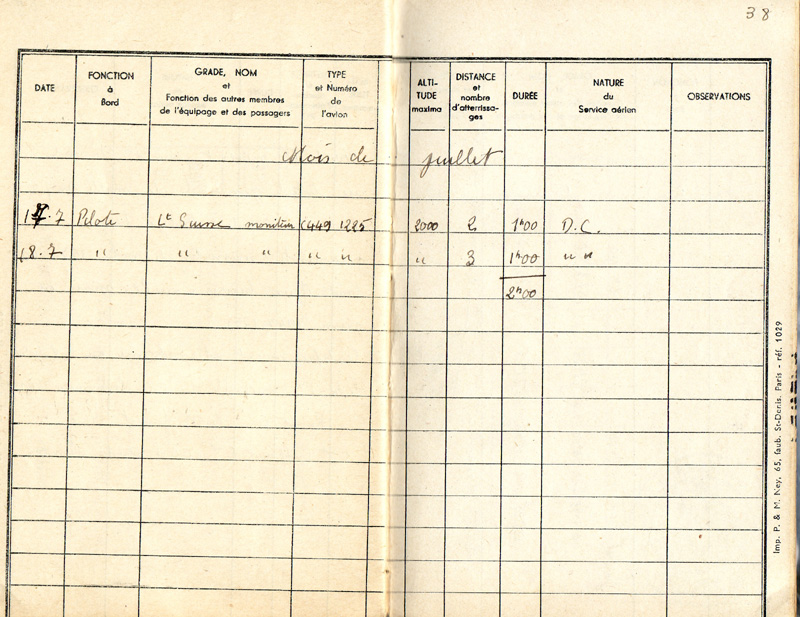 38
DATE FONCTION à Bord GRADE, NOM et Fonction des autres membres de l'équipage et des passagers TYPE et Numéro de l'avion ALTI-TUDE maxima DISTANCE et nombre d'atterrissa-ges DURÉE NATURE du Service aérien OBSERVATIONS
Mois de juillet
17.7 Pilote Lt moniteur C449 1225 2000 2 1h00 D.C.
18.7 " " " " " " 3 1h00 " "
2h00
Imp. P. & M. Ney, 65, faub. St-Denis, Paris - réf. 1029